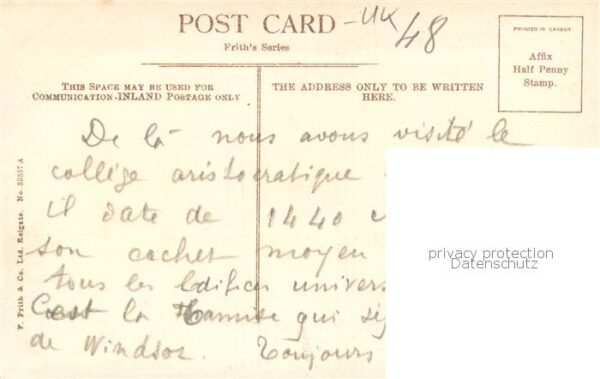 POST CARD
-UK
48
Frith's Series
PRINTED IN SAXONY
Affix
Half Penny
Stamp.
THIS SPACE MAY BE USED FOR
COMMUNICATION-INLAND POSTAGE ONLY
THE ADDRESS ONLY TO BE WRITTEN
HERE.
De là nous avons visité le
collége aristocratique
il date de 1440
son cachet moyen
tous les édifices univers
C'est la Tamise qui sé
de Windsor. Toujours
F. Frith & Co. Ltd. Reigate.
privacy protection
Datenschutz